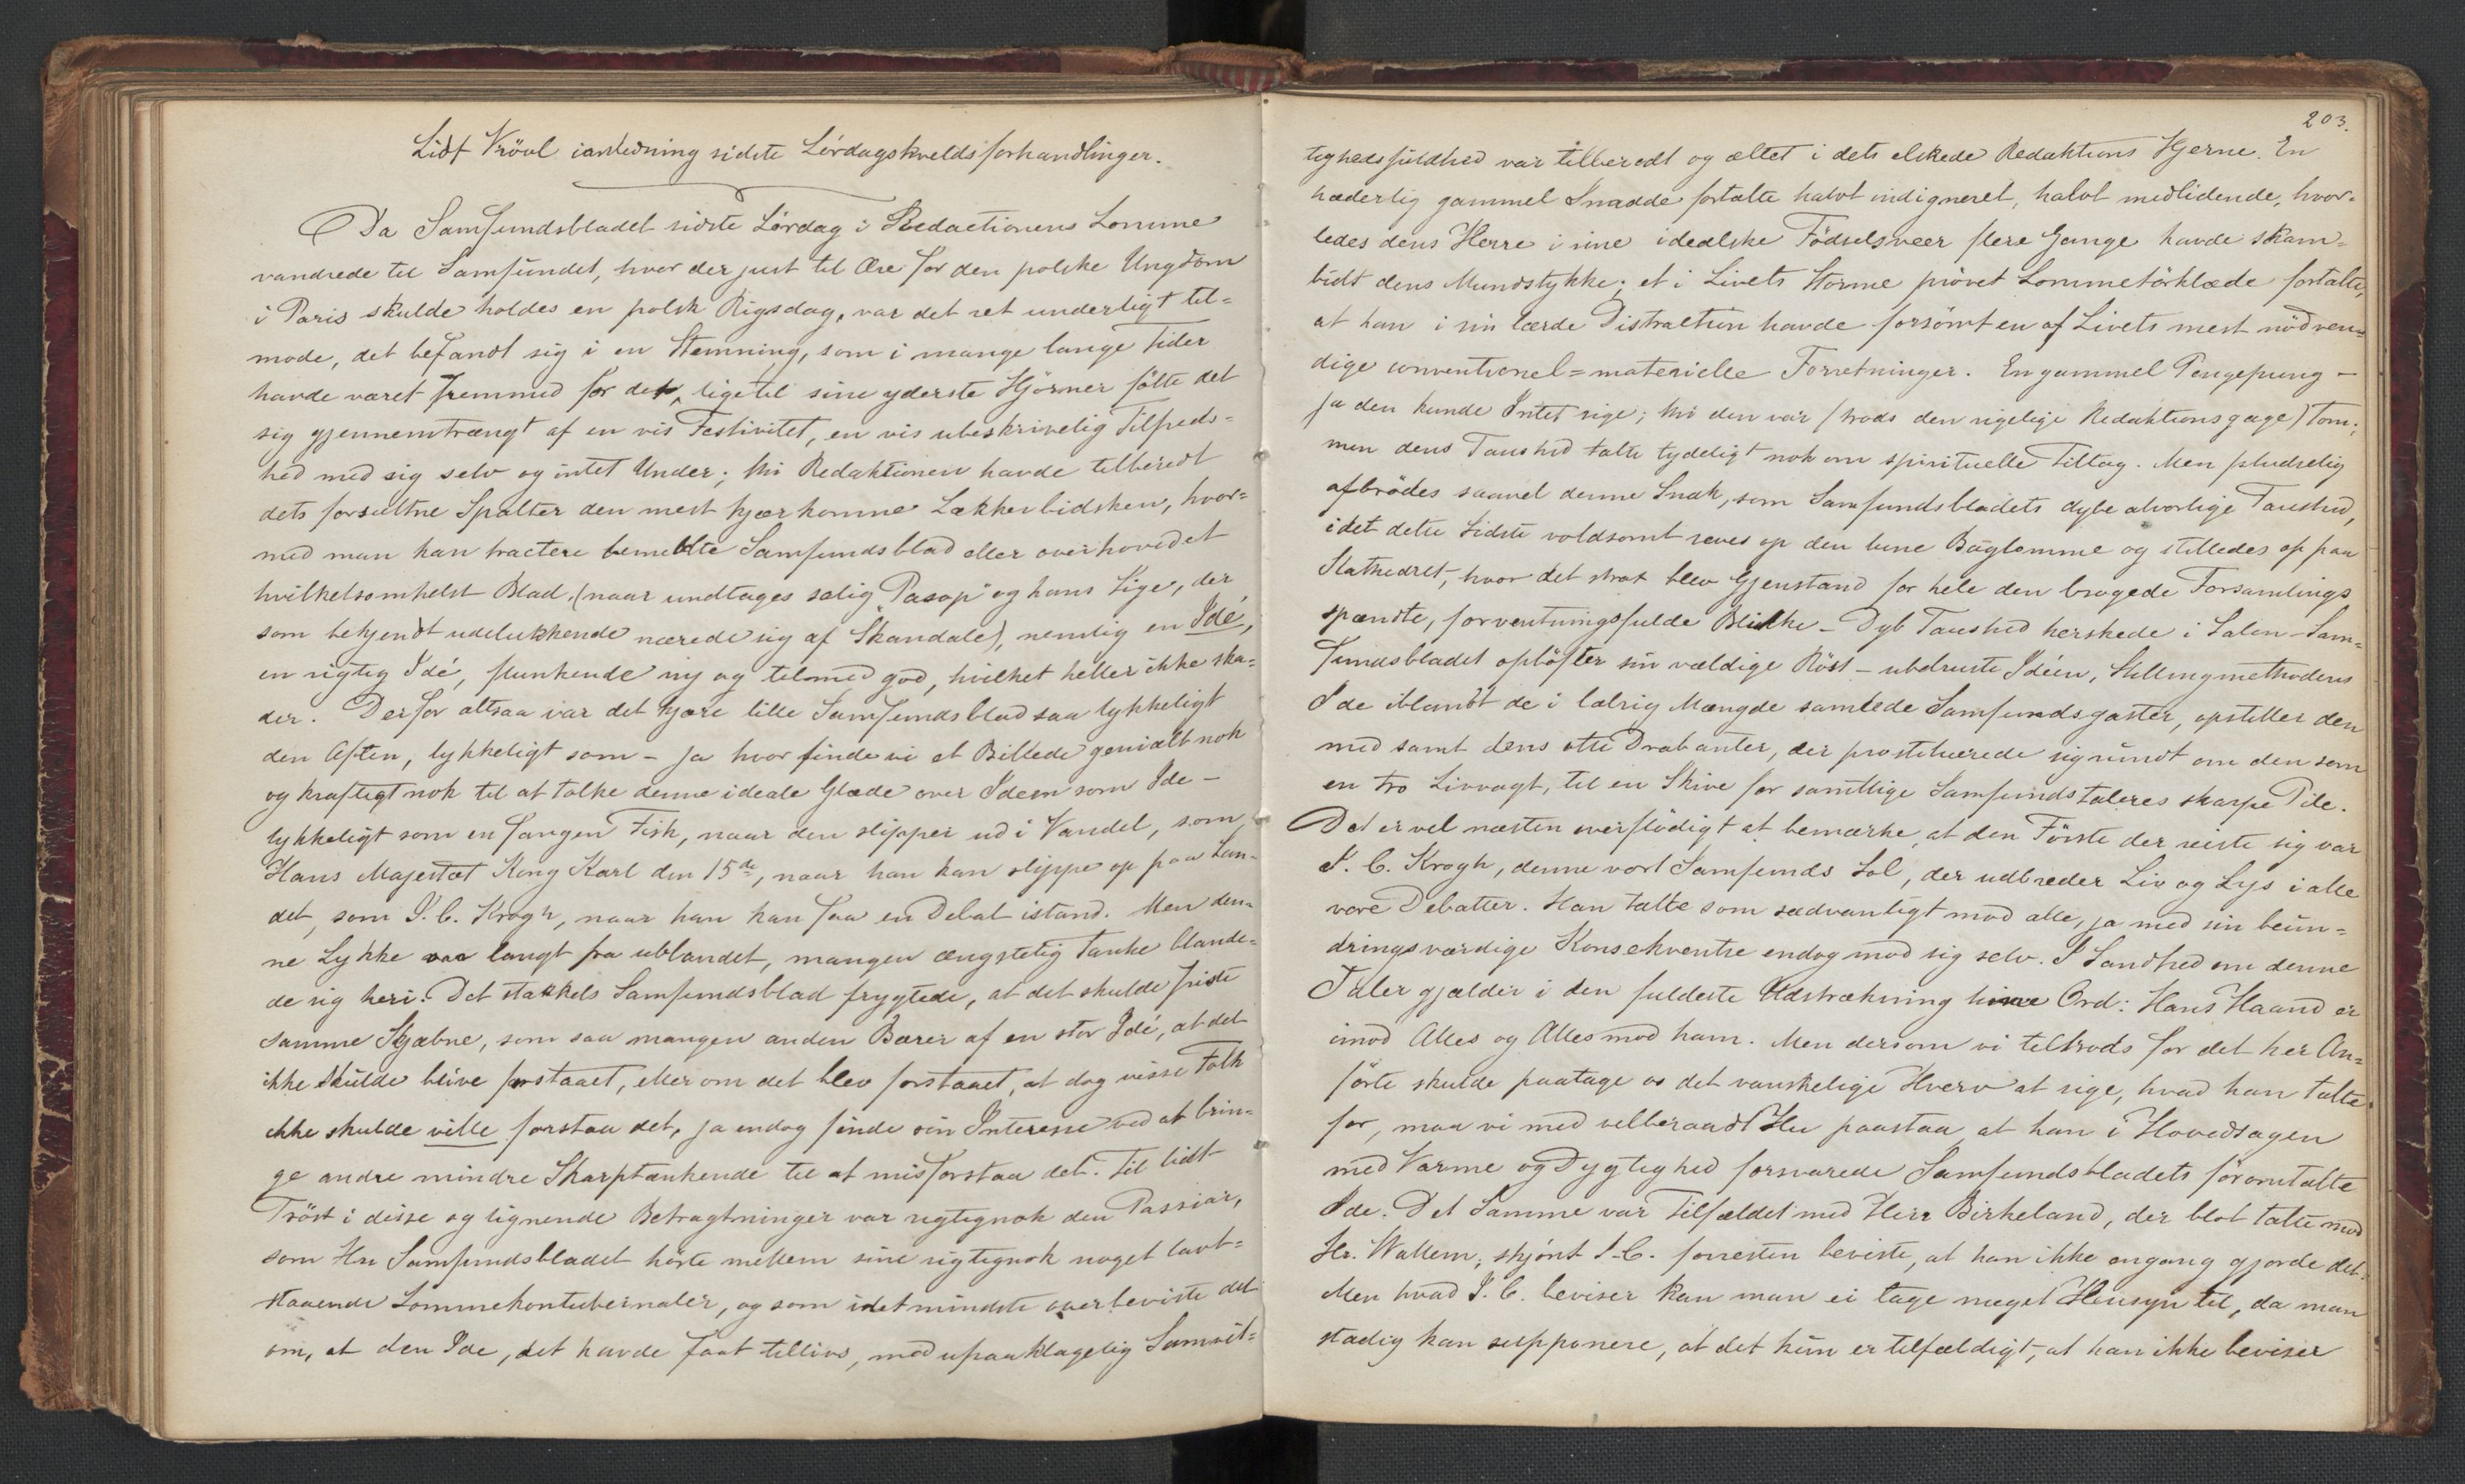 Lidt Vrövl ianledning sidste Lördagskveldsforhandlinger.
Da Samfundsbladet sidste Lördag i Redactionens Lomme
vandrede til Samfundet, hvor der just til Ære for den polske Ungdom
i Paris skulde holdes en polsk Rigsdag, var det ret underligt til=
mode, det befandt sig i en Stemning, som i mange lange Tider
havde været fremmed for det, ligetil sine yderste Hjörner fölte det
sig gjennemtrængt af en vis Festivitet, en vis ubeskrivelig Tilfreds=
hed med sig selv og intet Under; thi Redaktionen havde tilberedt
dets forsultne Spalter den mest kjærkomne Lækkerbidsken, hvor=
med man kan tractere bemeldte Samfundsblad eller overhovedet
hvilketsomhelst Blad, (naar undtages salig "Pasop" og hans Lige, der
som bekjendt udelukkende nærede sig af Skandale), nemlig en Idé,
en rigtig Idé, flunkende ny og tilmed god, hvilket heller ikke ska=
der. Derfor altsaa var det kjære lille Samfundsblad saa lykkeligt
den Aften, lykkeligt som – ja hvor finde vi et Billede genialt nok
og kraftigt nok til at tolke denne ideale Glæde over Ideen som Ide –
lykkeligt som en fangen Fisk, naar den slipper ud i Vandet, som
Hans Majestæt Kong Karl den 15de, naar han kan slippe op paa Lan=
det, som J. C. Krogh, naar han kan faa en Debat istand. Men den=
ne Lykke var langt fra ublandet, mangen ængstelig Tanke blande=
de sig heri. Det stakkels Samfundsblad frygtede, at det skulde friste
samme Skjæbne, som saa mangen anden Bærer af en stor Idé, at det
ikke skulde blive forstaaet, eller om det blev forstaaet, at dog visse Folk
ikke skulde ville forstaa det, ja endog finde sin Interesse ved at brin=
ge andre mindre Skarptænkende til at misforstaa det. Til lidt
Tröst i disse og lignende Betragtninger var rigtignok den Passiar,
som Hr Samfundsbladet hörte mellem sine rigtignok noget lavt=
staaende Lommekontubernaler, og som idetmindste overbeviste det
om, at den Ide, det havde faat tillivs, med upaaklagelig Samvit=
203.
tighedsfuldhed var tilberedt og æltet i dets elskede Redaktions Hjerne. En
hæderlig gammel Snadde fortalte halvt indigneret, halvt medlidende, hvor=
ledes dens Herre i sine idealske Födselsveer flere Gange havde skam=
bidt dens Mundstykke; et i Livets Storme prövet Lommetörklæde fortalte,
at han i sin lærde Distraction havde forsömt en af Livets mest nödven=
dige conventionel=materielle Forretninger. En gammel Pengepung –
ja den kunde Intet sige; thi den var (trods den rigelige Redaktionsgage) tom;
men dens Taushed talte tydeligt nok om spirituelle Tiltag. Men pludselig
afbrödes saavel denne Snak, som Samfundsbladets dybe alvorlige Taushed,
idet dette Sidste voldsomt reves op den lune Baglomme og stilledes op paa
Kathedret, hvor det strax blev Gjenstand for hele den brogede Forsamlings
spændte, forventningsfulde Blikke – Dyb Taushed herskede i Salen – Sam=
fundsbladet oplöfter sin vældige Röst – udbruste Idéen, Stillingmethodens
Ide iblandt de i talrig Mængde samlede Samfundsgaster, opstiller den
med samt dens otte Drabanter, der prostituerede sig rundt om den som
en tro Livvagt, til en Skive for samtlige Samfundstaleres skarpe Pile.
Det er vel næsten overflödigt at bemærke, at den Förste der reiste sig var
J. C. Krogh, denne vort Samfunds Sol, der udbreder Liv og Lys i alle
vore Debatter. Han talte som sædvanligt mod alle, ja med sin beun=
dringsværdige Konsekventse endog mod sig selv. I Sandhed om denne
Taler gjælder i den fuldeste Udstrækning hine Ord: Hans Haand er
imod Alles og Alles mod ham. Men dersom vi tiltrods for det her An=
förte skulde paatage os det vanskelige Hverv at sige, hvad han talte
for, maa vi med velberaadt Hu paastaa at han i Hovedsagen
med Varme og Dygtighed forsvarede Samfundsbladets föromtalte
Ide. Det Samme var Tilfældet med Herr Birkeland, der blot talte mod
Hr. Wallem; skjönt J.C. forresten beviste, at han ikke engang gjorde det.
Men hvad J. C. beviser kan man ei tage noget Hensyn til, da man
stadig kan supponere, at det kun er tilfældigt, at han ikke beviser